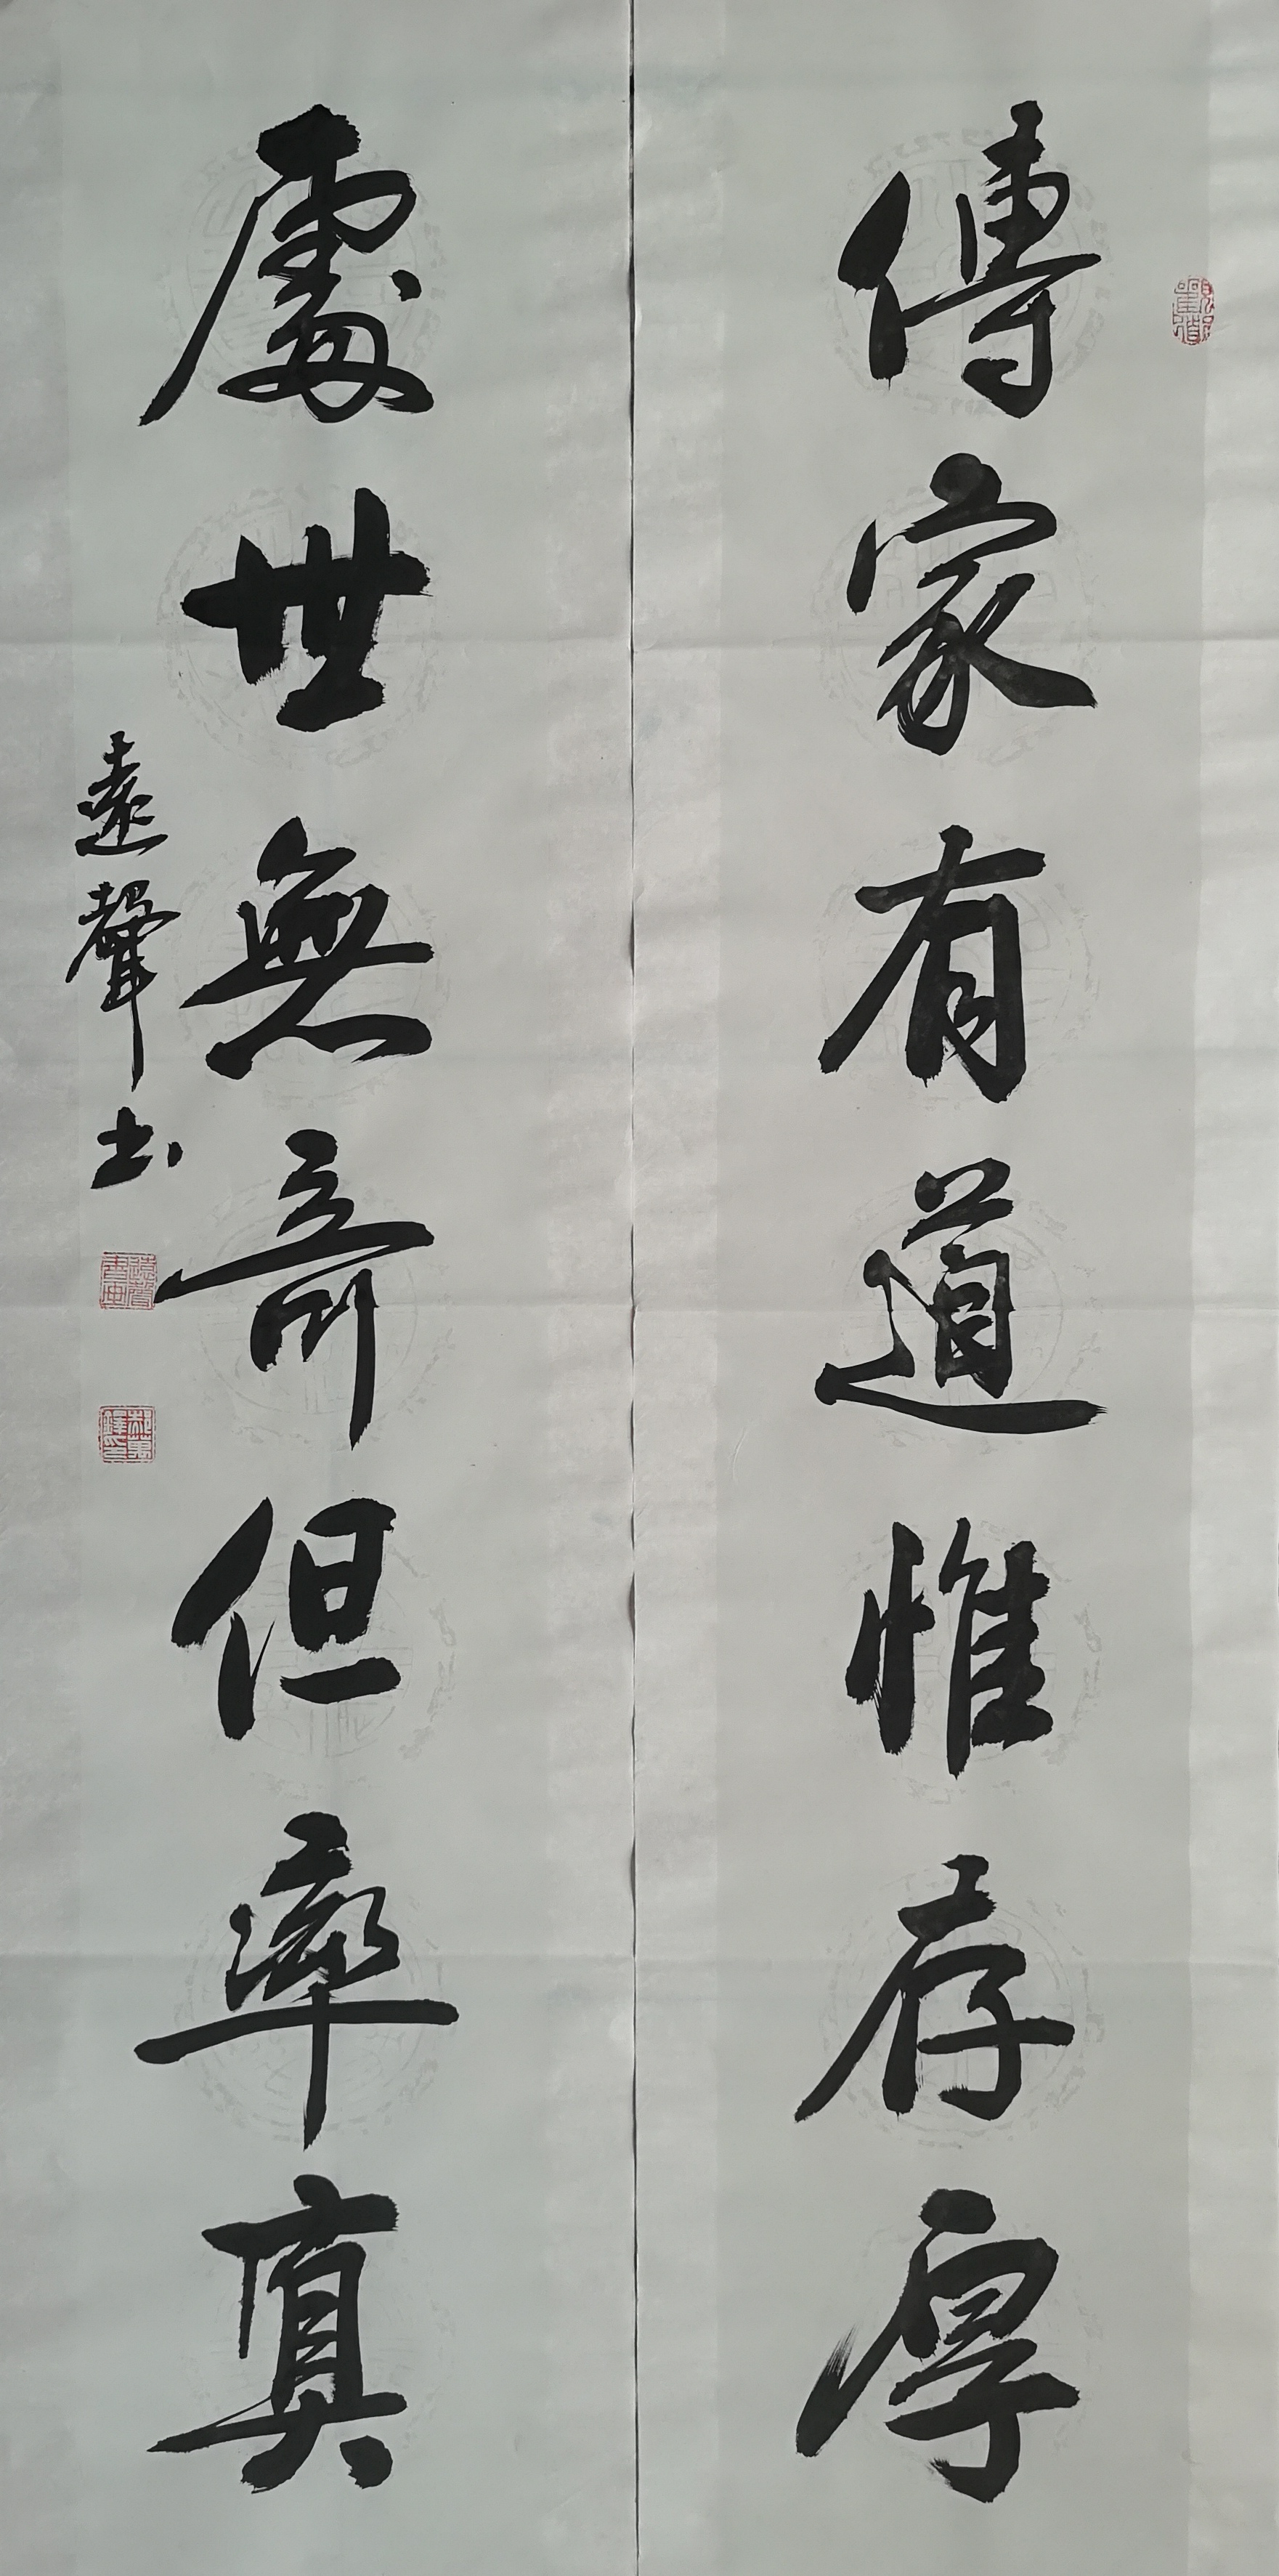 傳家有道惟存厚
處世無奇但率真
遠聲书